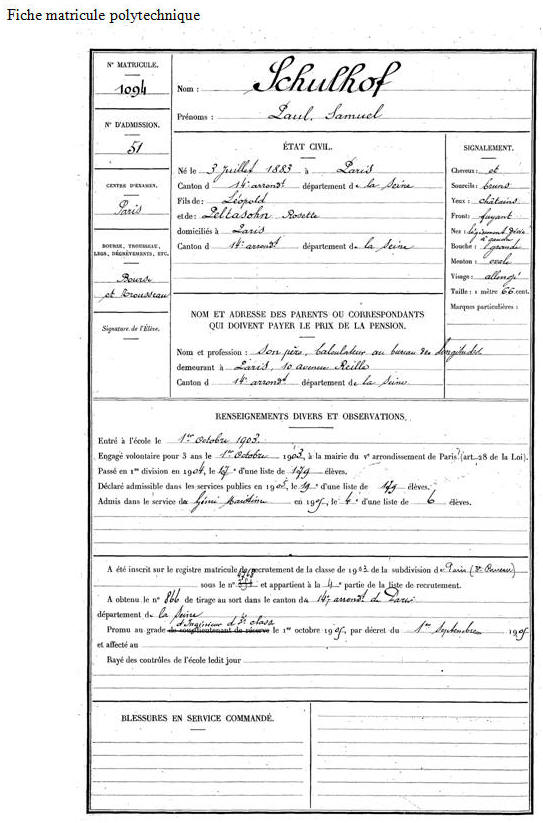 Fiche matricule polytechnique
N° MATRICULE.
1094
N° D'ADMISSION.
51
CENTRE D'EXAMEN.
Paris
BOURSE, TROUSSEAU, LEGS, DÉGRÈVEMENTS, ETC.
Bourse
et Trousseau
Signature de l'Élève.
Nom : Schulhof
Prénoms : Paul Samuel
ÉTAT CIVIL.
Né le 3 Juillet 1883 à Paris
Canton d 14e arrondt département de la Seine
Fils de : Léopold
et de : Peltasohn Rosette
domiciliés à Paris
Canton d 14e arrondt département de la Seine
SIGNALEMENT.
Cheveux : et
Sourcils : bruns
Yeux : châtains
Front : fuyant
Nez : légèrement dévié
à gauche
Bouche : grande
Menton : ovale
Visage : allongé
Taille : 1 mètre 66 cent.
Marques particulières :
NOM ET ADRESSE DES PARENTS OU CORRESPONDANTS
QUI DOIVENT PAYER LE PRIX DE LA PENSION.
Nom et profession : Son père, Calculateur au bureau des longitudes
demeurant à Paris, 10 avenue Reille
Canton d 14e arrondt département de la Seine
RENSEIGNEMENTS DIVERS ET OBSERVATIONS.
Entré à l'école le 1er Octobre 1903.
Engagé volontaire pour 3 ans le 1er Octobre 1903, à la mairie du Ve arrondissement de Paris (art. 28 de la Loi).
Passé en 1re division en 1904, le 17e d'une liste de 179 élèves.
Déclaré admissible dans les services publics en 1905, le 19e d'une liste de 179 élèves.
Admis dans le service du Génie Maritime en 1905, le 4e d'une liste de 6 élèves.
A été inscrit sur le registre matricule de recrutement de la classe de 1903 de la subdivision de Paris
sous le n° et appartient à la 4e partie de la liste de recrutement.
A obtenu le n° 866 de tirage au sort dans le canton du 14e arrondt de Paris
département de la Seine
d'Ingénieur de 3e classe
Promu au grade de sous-lieutenant de réserve le 1er octobre 1905, par décret du 1er Septembre 1905
et affecté au
Rayé des contrôles de l'école ledit jour
BLESSURES EN SERVICE COMMANDÉ.